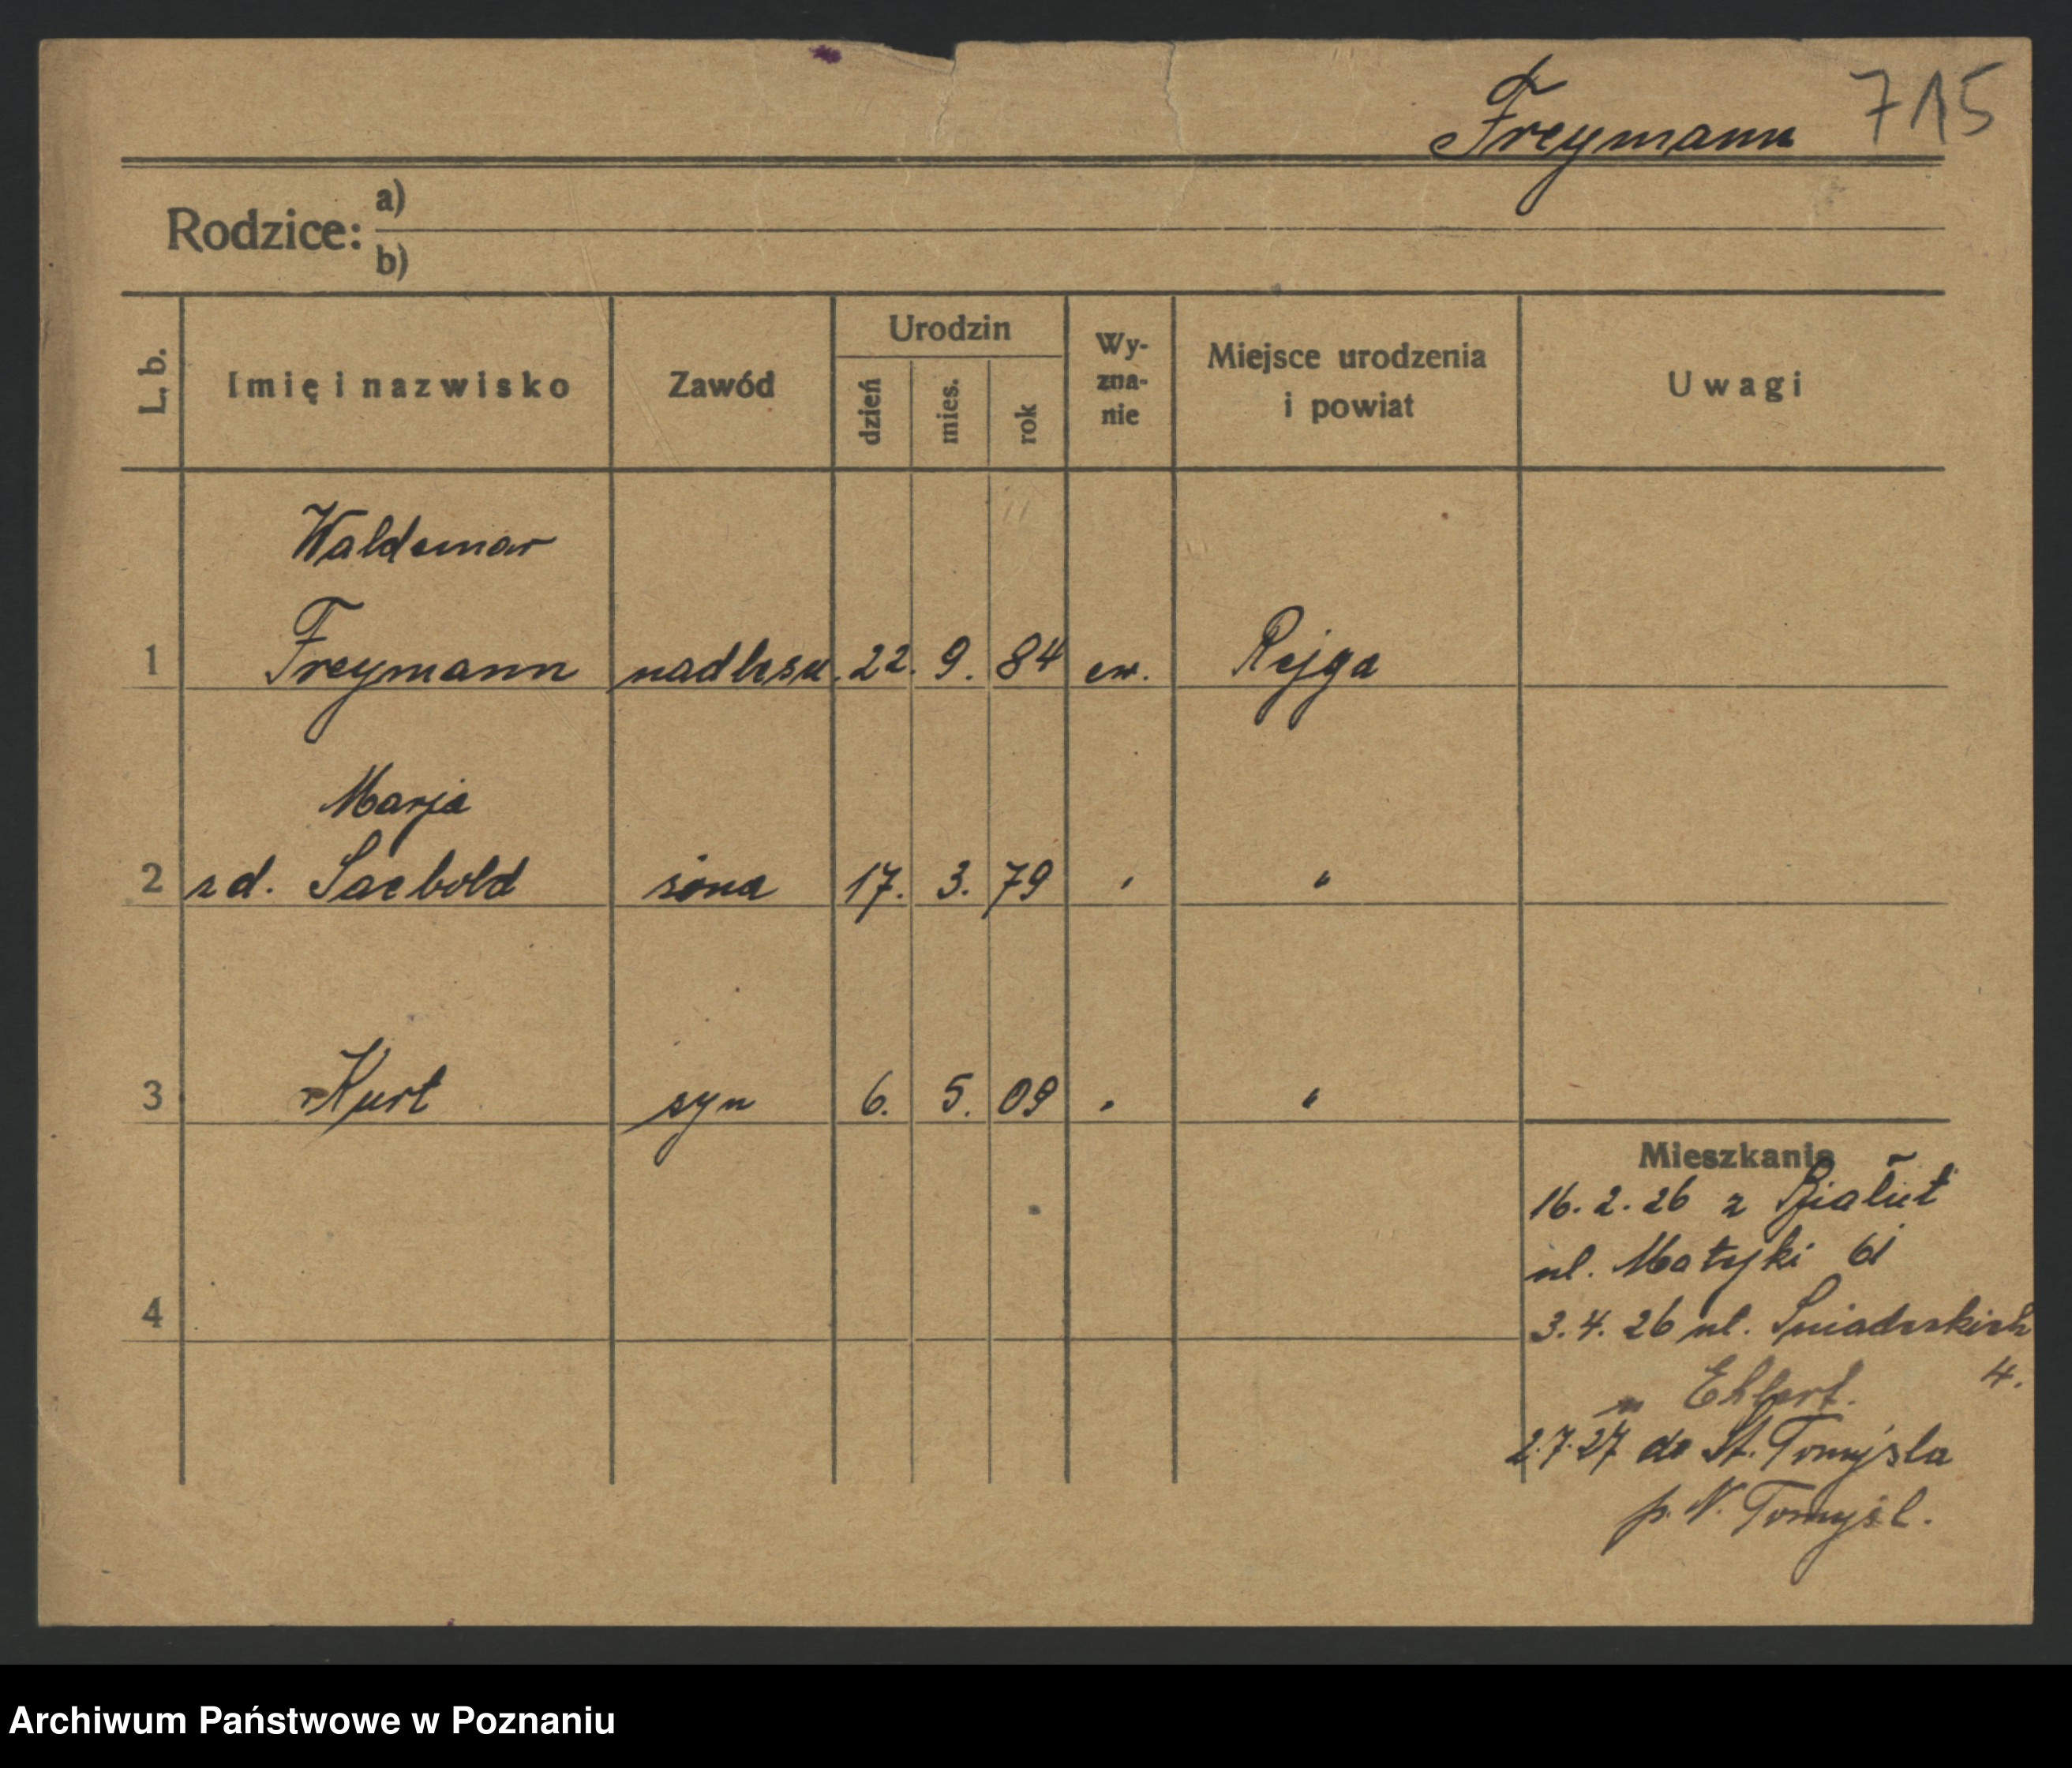 Freymann 715
Rodzice: a)
b)
L. b. Imię i nazwisko Zawód Urodzin dzień mies. rok Wy-zna-nie Miejsce urodzenia i powiat Uwagi
Waldemar
1 Freymann nadleśn. 22. 9. 84 ew. Rejga
Marja
2 z d. Saebold żona 17. 3. 79 " "
3 Kurt syn 6. 5. 09 " "
Mieszkanie
16. 2. 26 z Białut
ul. Matejki 61
3. 4. 26 ul. Śniadeckich
4.
u Ehlert.
2.7.27 do St. Tomyśla
p. N. Tomyśl.
4
Archiwum Państwowe w Poznaniu